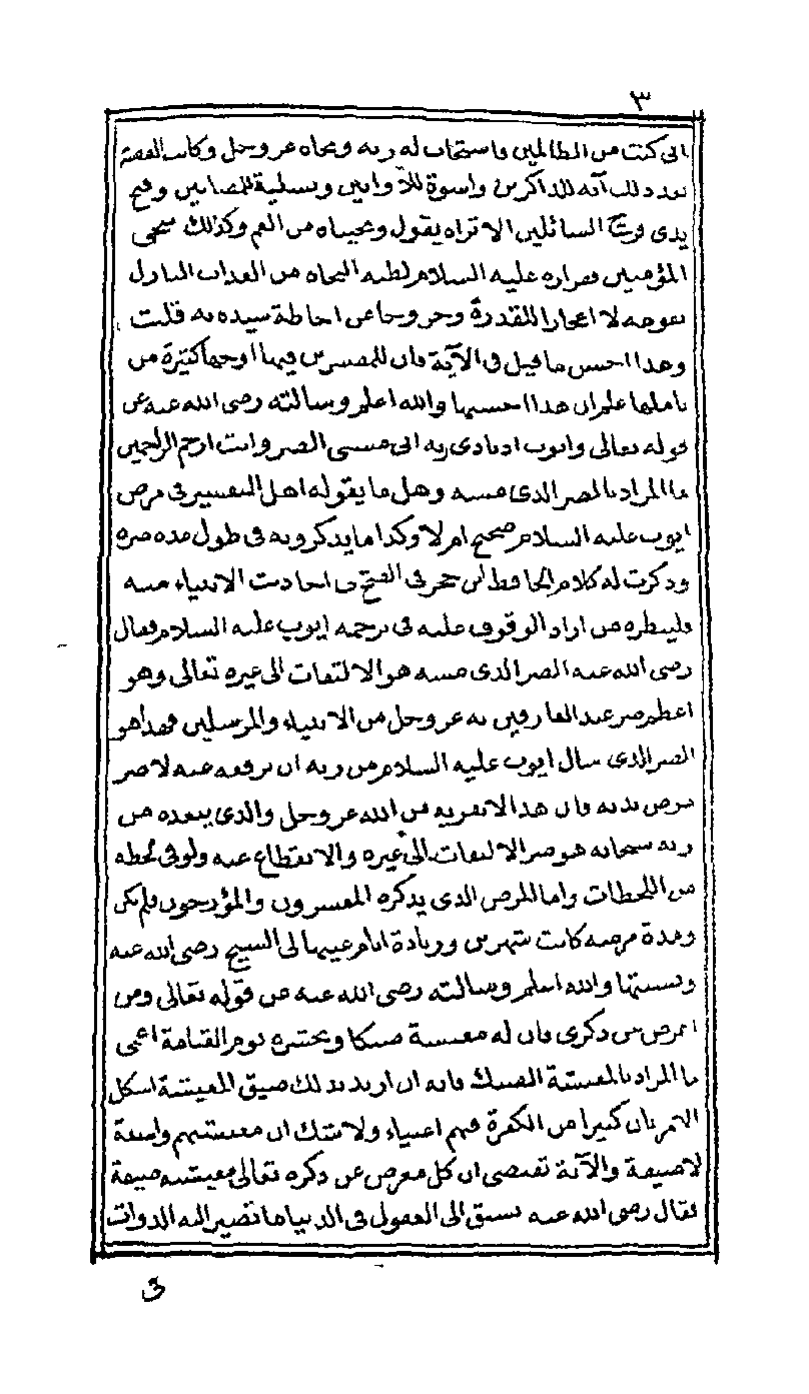 ٣
انى كنت من الظالمين فاستجاب له ربه ونجاه عز وجل وكانت القصة
بعد ذلك آية للذاكرين واسوة للأوابين وتسلية للمصابين وفتح
يدى السائلين الا تراه يقول ونجيناه من الغم وكذلك ننجى
المؤمنين ففراره عليه السلام لطلبه النجاة من العذاب النازل
بقومه لا اعجازا للقدرة وخروجا عن احاطة سيده به قلت
وهذا احسن ما قيل فى الآية فان للمفسرين فيها اوجها كثيرة من
تاملها علم ان هذا احسنها والله اعلم وسالته رضى الله عنه عن
قوله تعالى وايوب اذ نادى ربه انى مسنى الضر وانت ارحم الراحمين
ما المراد بالضر الذى مسه وهل ما يقوله اهل التفسير فى مرض
ايوب عليه السلام صحيح ام لا وكذا ما يذكرونه فى طول مدة ضره
وذكرت له كلام الحافظ ابن حجر فى الفتح فى احاديث الانبياء منه
فلينظره من اراد الوقوف عليه فى ترجمة ايوب عليه السلام فقال
رضى الله عنه الضر الذى مسه هو الالتفات الى غيره تعالى وهو
اعظم ضر عند العارفين به عز وجل من الانبياء والمرسلين فهذا هو
الضر الذى سال ايوب عليه السلام من ربه ان يرفعه عنه لا ضر
مرض بدنه فان هذا لا يقربه من الله عز وجل والذى يبعده من
ربه سبحانه هو ضر الالتفات الى غيره والانقطاع عنه ولو فى لحظة
من اللحظات واما المرض الذى يذكره المفسرون والمؤرخون فلم يكن
ومدة مرضه كانت شهرين وزيادة ايام عينها لى الشيخ رضى الله عنه
ونسيتها والله اعلم وسالته رضى الله عنه عن قوله تعالى ومن
اعرض عن ذكرى فان له معيشة ضنكا ونحشره يوم القيامة اعمى
ما المراد بالمعيشة الضنك فانه ان اريد بذلك ضيق المعيشة اشكل
الامر بان كثيرا من الكفرة فهم اغنياء ولا شك ان معيشتهم واسعة
لا ضيقة والآية تقتضى ان كل معرض عن ذكره تعالى معيشته ضيقة
فقال رضى الله عنه يسبق الى العقول فى الدنيا ما تصير اليه الذوات
فى